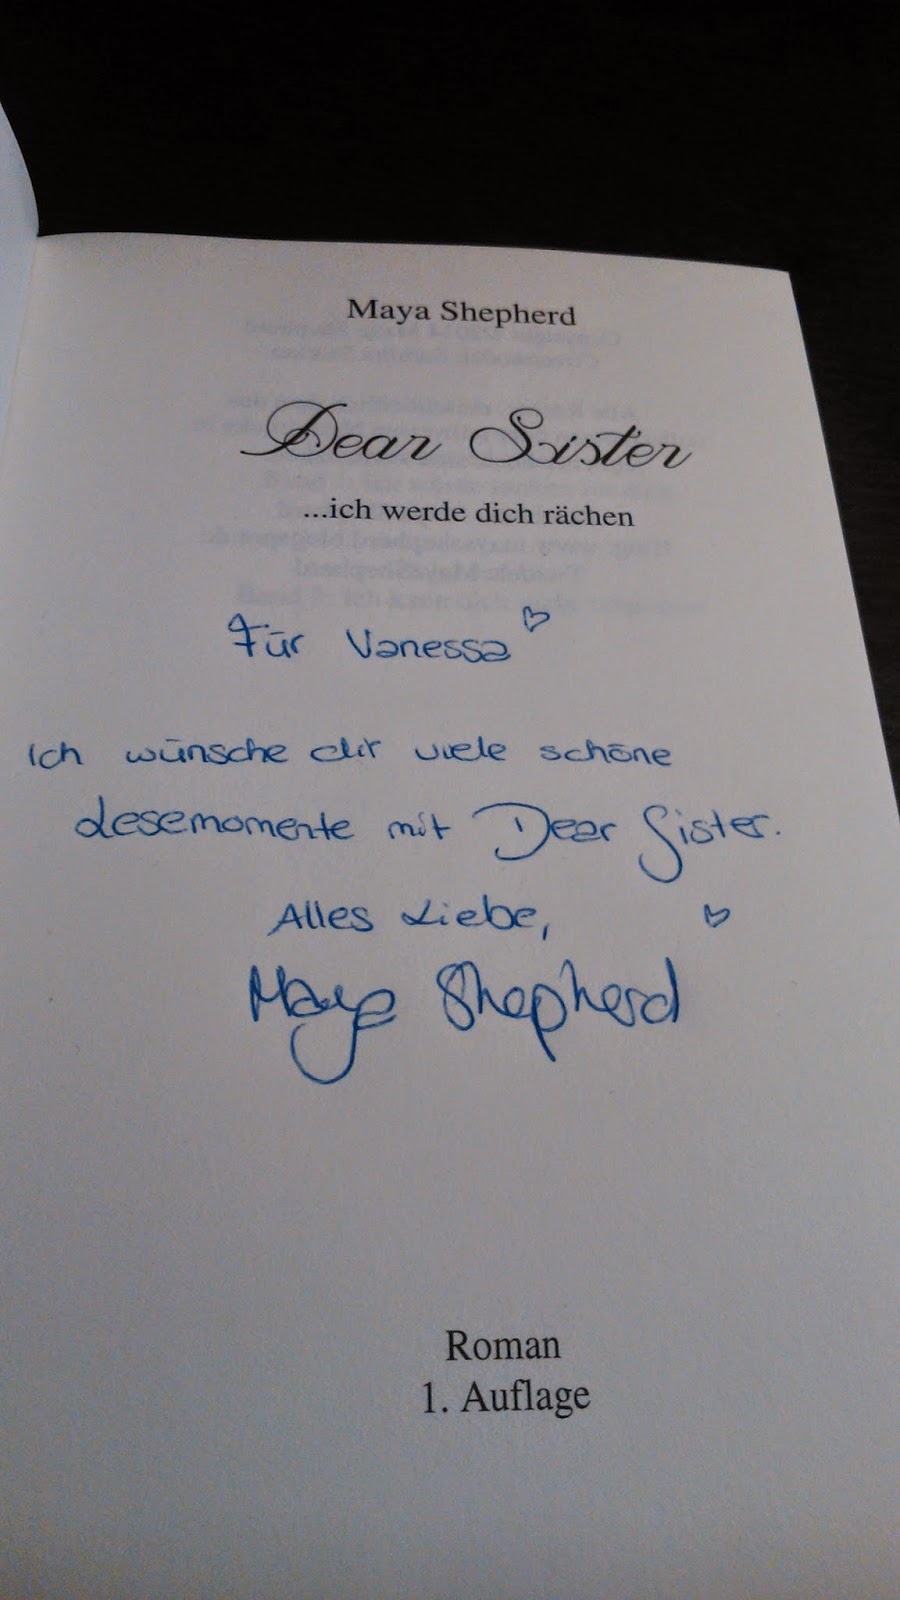 Maya Shepherd
Dear Sister
...ich werde dich rächen
Für Vanessa
Ich wünsche dir viele schöne
Lesemomente mit Dear Sister.
Alles Liebe,
Maya Shepherd
Roman
1. Auflage